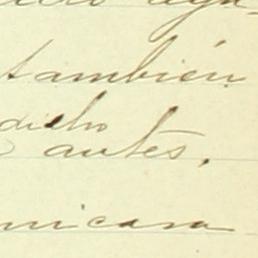 también
dicho
antes.
mi casa